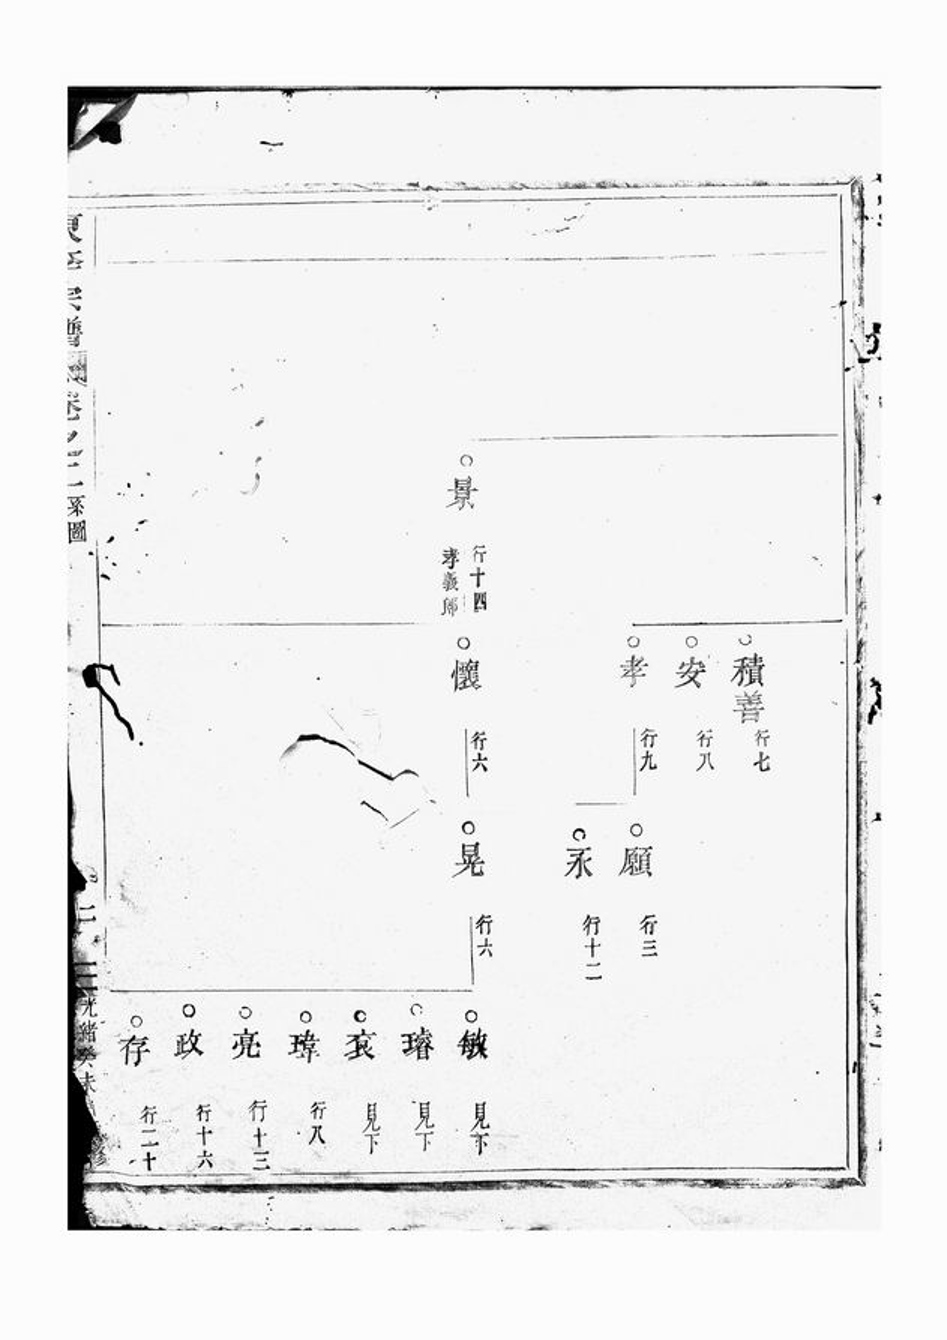 積善 行七
安 行八
孝 行九
願 行三
永 行十二
景 行十四
孝義鄉
懷 行六
晃 行六
敏 見下
璿 見下
袞 見下
瑋 行八
亮 行十三
政 行十六
存 行二十
宗譜圖卷之二系圖
二
光緒癸未
修